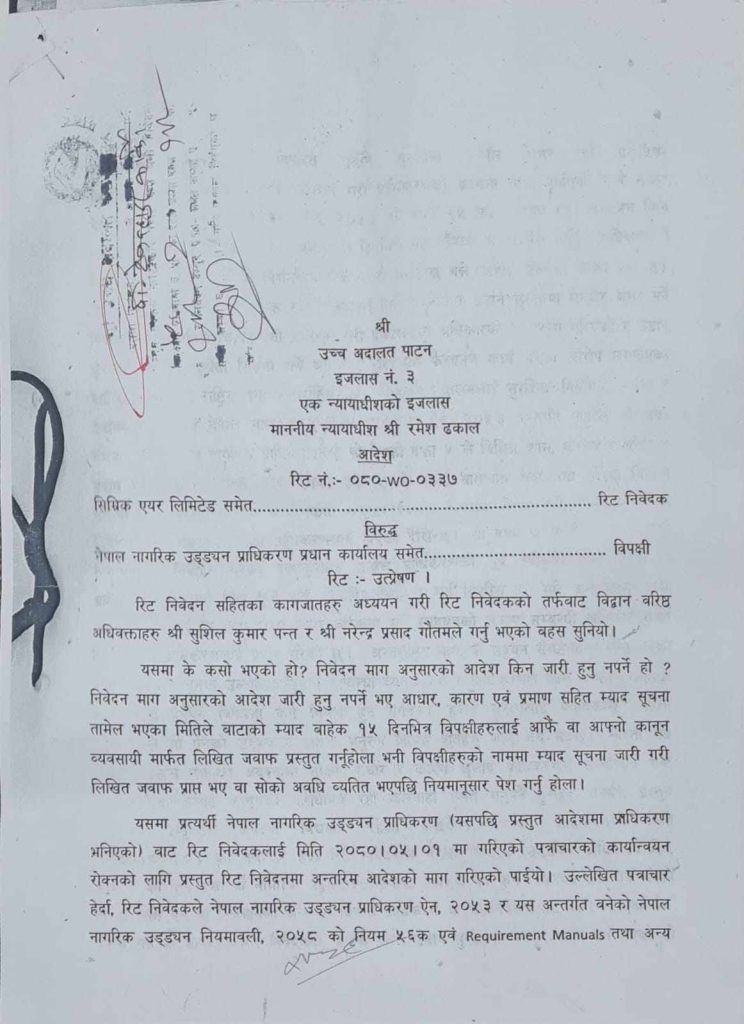 श्री
उच्च अदालत पाटन
इजलास नं. ३
एक न्यायाधीशको इजलास
माननीय न्यायाधीश श्री रमेश ढकाल
आदेश
रिट नं.:- ०८०-WO-०३३७
सिम्रिक एयर लिमिटेड समेत.................................................................. रिट निवेदक
विरुद्ध
नेपाल नागरिक उड्ड्यन प्राधिकरण प्रधान कार्यालय समेत.................................... विपक्षी
रिट :- उत्प्रेषण ।
रिट निवेदन सहितका कागजातहरु अध्ययन गरी रिट निवेदकको तर्फबाट विद्वान वरिष्ठ
अधिवक्ताहरु श्री सुशिल कुमार पन्त र श्री नरेन्द्र प्रसाद गौतमले गर्नु भएको बहस सुनियो।
यसमा के कसो भएको हो? निवेदन माग अनुसारको आदेश किन जारी हुनु नपर्ने हो ?
निवेदन माग अनुसारको आदेश जारी हुनु नपर्ने भए आधार, कारण एवं प्रमाण सहित म्याद सूचना
तामेल भएका मितिले बाटाको म्याद बाहेक १५ दिनभित्र विपक्षीहरुलाई आफैं वा आफ्नो कानून
व्यवसायी मार्फत लिखित जवाफ प्रस्तुत गर्नूहोला भनी विपक्षीहरुको नाममा म्याद सूचना जारी गरी
लिखित जवाफ प्राप्त भए वा सोको अवधि व्यतित भएपछि नियमानूसार पेश गर्नु होला।
यसमा प्रत्यर्थी नेपाल नागरिक उड्ड्यन प्राधिकरण (यसपछि प्रस्तुत आदेशमा प्राधिकरण
भनिएको) बाट रिट निवेदकलाई मिति २०८०।०५।०१ मा गरिएको पत्राचारको कार्यान्वयन
रोक्नको लागि प्रस्तुत रिट निवेदनमा अन्तरिम आदेशको माग गरिएको पाईयो। उल्लेखित पत्राचार
हेर्दा, रिट निवेदकले नेपाल नागरिक उड्ड्यन प्राधिकरण ऐन, २०५३ र यस अन्तर्गत बनेको नेपाल
नागरिक उड्ड्यन नियमावली, २०५८ को नियम ५६क एवं Requirement Manuals तथा अन्य